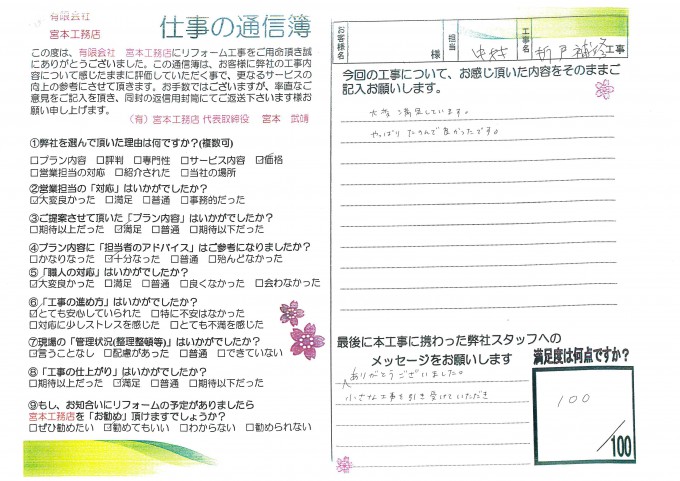 有限会社
宮本工務店
仕事の通信簿
この度は、有限会社 宮本工務店にリフォーム工事をご用命頂き誠
にありがとうございました。この通信簿は、お客様に弊社の工事内
容について感じたままに評価していただく事で、更なるサービスの
向上の参考にさせて頂きます。お手数ではございますが、率直なご
意見をご記入を頂き、同封の返信用封筒にてご返送下さいます様お
願い申し上げます。
(有)宮本工務店 代表取締役 宮本 武靖
①弊社を選んで頂いた理由は何ですか?(複数可)
□プラン内容 □評判 □専門性 □サービス内容 ☑価格
□営業担当の対応 □紹介された □当社の場所
②営業担当の「対応」はいかがでしたか?
☑大変良かった □満足 □普通 □事務的だった
③ご提案させて頂いた「プラン内容」はいかがでしたか?
□期待以上だった ☑満足 □普通 □期待以下だった
④プラン内容に「担当者のアドバイス」はご参考になりましたか?
□かなりなった ☑十分なった □普通 □殆んどなかった
⑤「職人の対応」はいかがでしたか?
☑大変良かった □満足 □普通 □良くなかった □会わなかった
⑥「工事の進め方」はいかがでしたか?
☑とても安心していられた □特に不安はなかった
□対応に少しストレスを感じた □とても不満を感じた
⑦現場の「管理状況(整理整頓等)」はいかがでしたか?
☑言うことなし □配慮があった □普通 □できていない
⑧「工事の仕上がり」はいかがでしたか?
□期待以上だった ☑満足 □普通 □期待以下だった
⑨もし、お知合いにリフォームの予定がありましたら
宮本工務店を「お勧め」頂けますでしょうか?
□ぜひ勧めたい ☑勧めてもいい □わからない □勧められない
お客様名 様 担当 中村 工事名 折戸補修 工事
今回の工事について、お感じ頂いた内容をそのままご
記入お願いします。
大変満足しています。
やっぱりたのんで良かったです。
最後に本工事に携わった弊社スタッフへの
メッセージをお願いします
ありがとうございました。
小さな工事を引き受けていただき
満足度は何点ですか?
100
/100